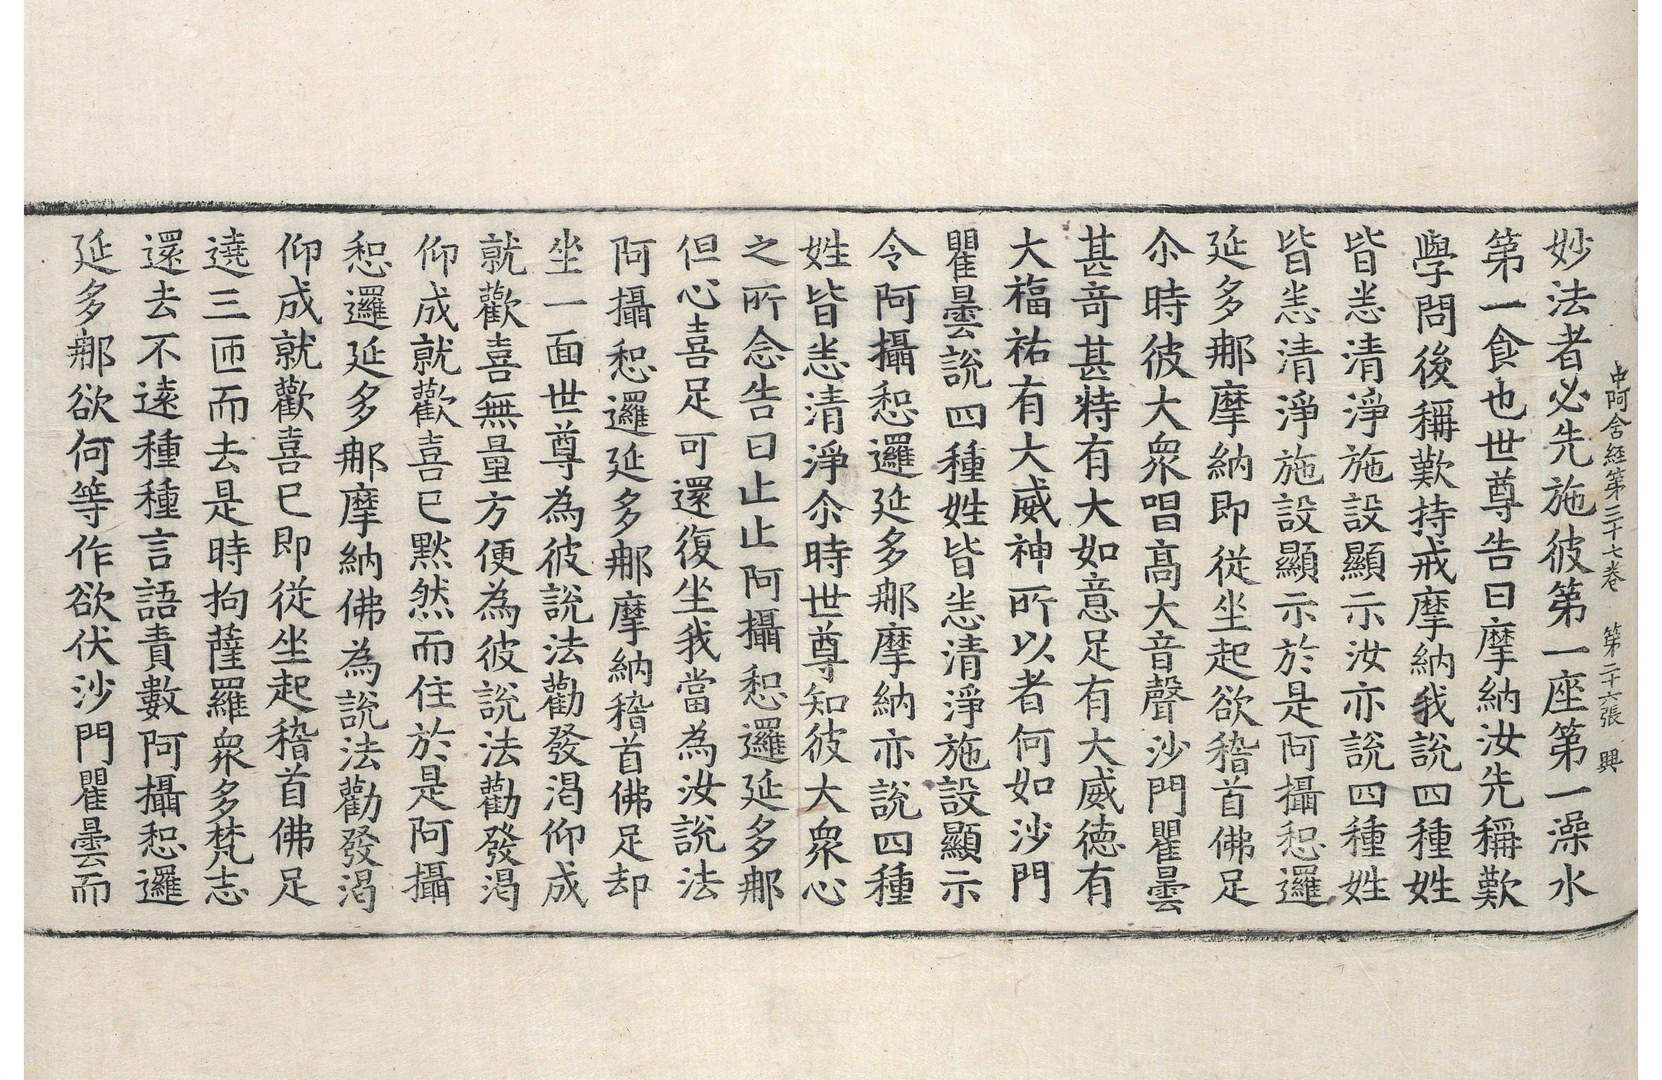 中阿含経第三十七巻　第二十六張　興
妙法者必先施彼第一座第一澡水
第一食也世尊告曰摩納汝先稱歎
學問後稱歎持戒摩納我說四種姓
皆悉清淨施設顯示汝亦說四種姓
皆悉清淨施設顯示於是阿攝惒邏
延多那摩納即從坐起欲稽首佛足
尒時彼大衆唱髙大音聲沙門瞿曇
甚竒甚特有大如意足有大威徳有
大福祐有大威神所以者何如沙門
瞿曇說四種姓皆悉清淨施設顯示
令阿攝惒邏延多那摩納亦說四種
姓皆悉清淨尒時世尊知彼大衆心
之所念告曰止止阿攝惒邏延多那
但心喜足可還復坐我當為汝說法
阿攝惒邏延多那摩納稽首佛足却
坐一面世尊為彼說法勸發渴仰成
就歡喜無量方便為彼說法勸發渴
仰成就歡喜已默然而住於是阿攝
惒邏延多那摩納佛為說法勸發渴
仰成就歡喜已即從坐起稽首佛足
遶三匝而去是時拘薩羅衆多梵志
還去不遠種種言語責數阿攝惒邏
延多那欲何等作欲伏沙門瞿曇而